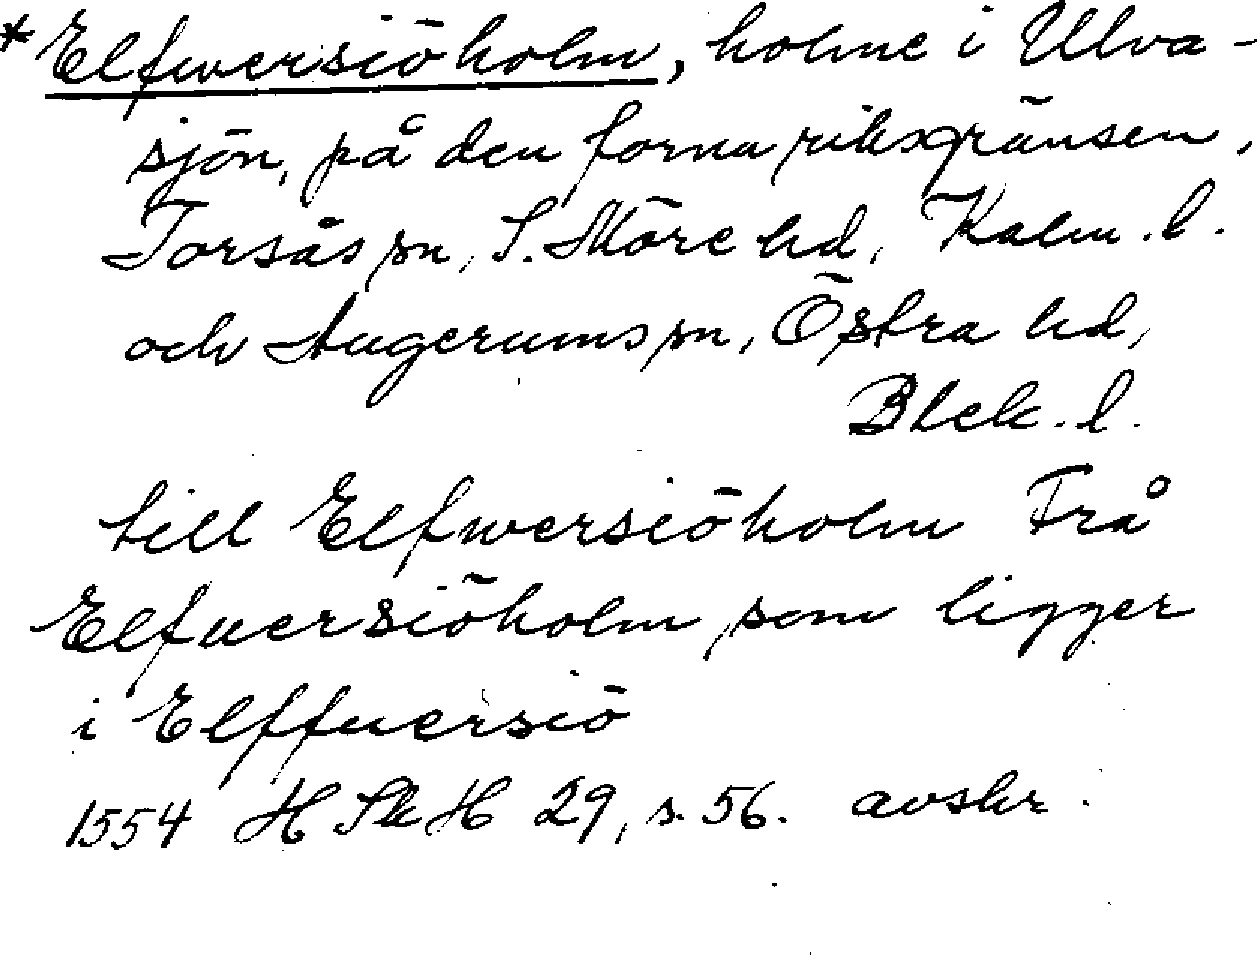 * Elfwersiöholm, holme i Ulva-
sjön, på den forna riksgränsen,
Torsås sn, S. Möre hd, Kalm. l.
och Augerums sn, Östra hd,
Blek. l.
till Elfwersiöholm Frå
Elfuersiöholm som ligger
i Elffuersiö
1554 H Sk H 29, s. 56. avskr.